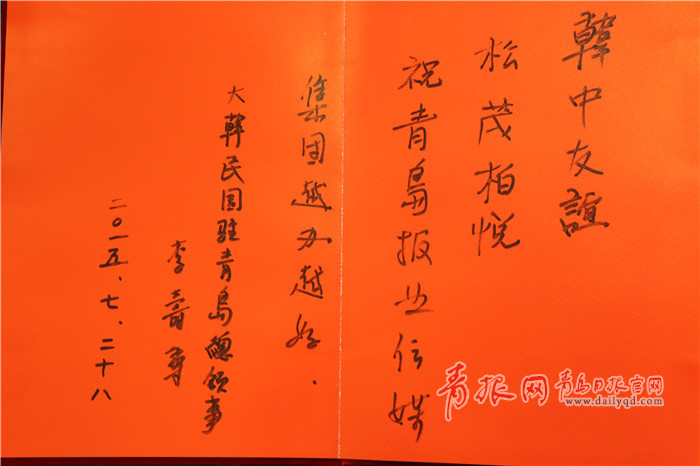 韓中友誼
松茂柏悦
祝青島报业传媒
集团越办越好.
大韓民国駐青島總領事
李壽尊
二〇一五、七、二十八
青报网 青岛日报官网
www.dailyqd.com